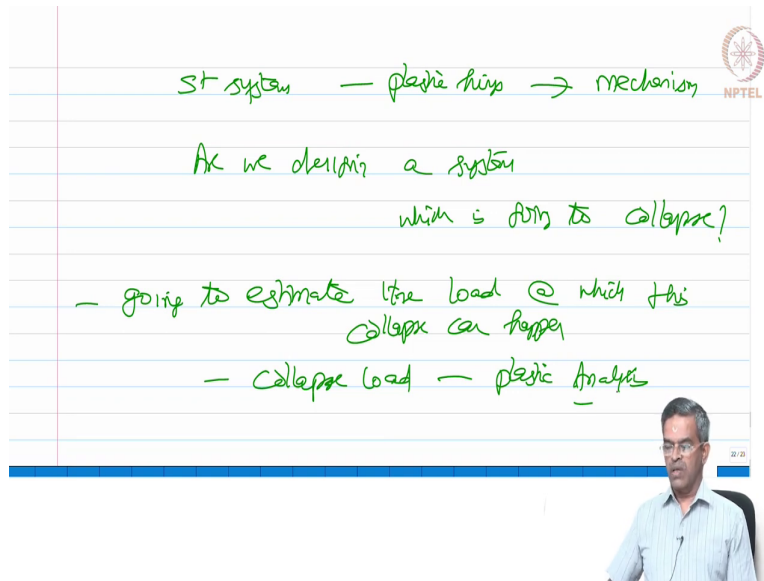 St system — plastic hinge → mechanism
NPTEL
Are we designing a system
which is going to collapse?
— going to estimate the load @ which this
collapse can happen
— collapse load — plastic Analysis
22 / 23